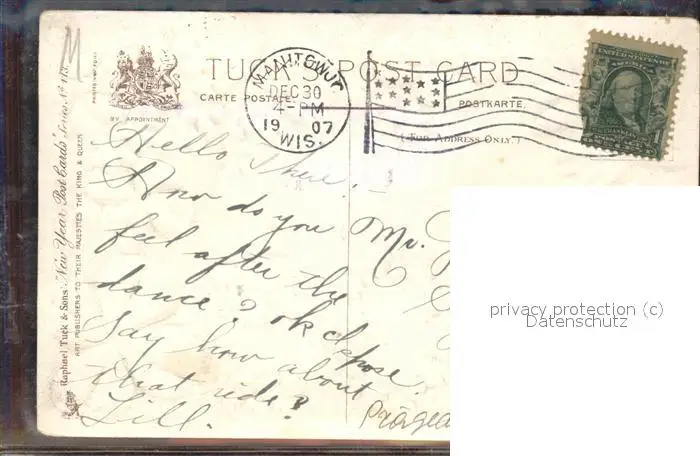 M
TUCK'S POST CARD
CARTE POSTALE.
POSTKARTE.
(FOR ADDRESS ONLY.)
BY APPOINTMENT
MANITOWOC
DEC 30
4-PM
1907
WIS.
UNITED STATES OF
AMERICA
FRANKLIN
Raphael Tuck & Sons' "New Year Post Cards" Series No
ART PUBLISHERS TO THEIR MAJESTIES THE KING & QUEEN
Hello There!
How do you
feel after the
dance? ok I spose.
Say how about
that ride?
Lill.
Mr.
privacy protection (c)
Datenschutz